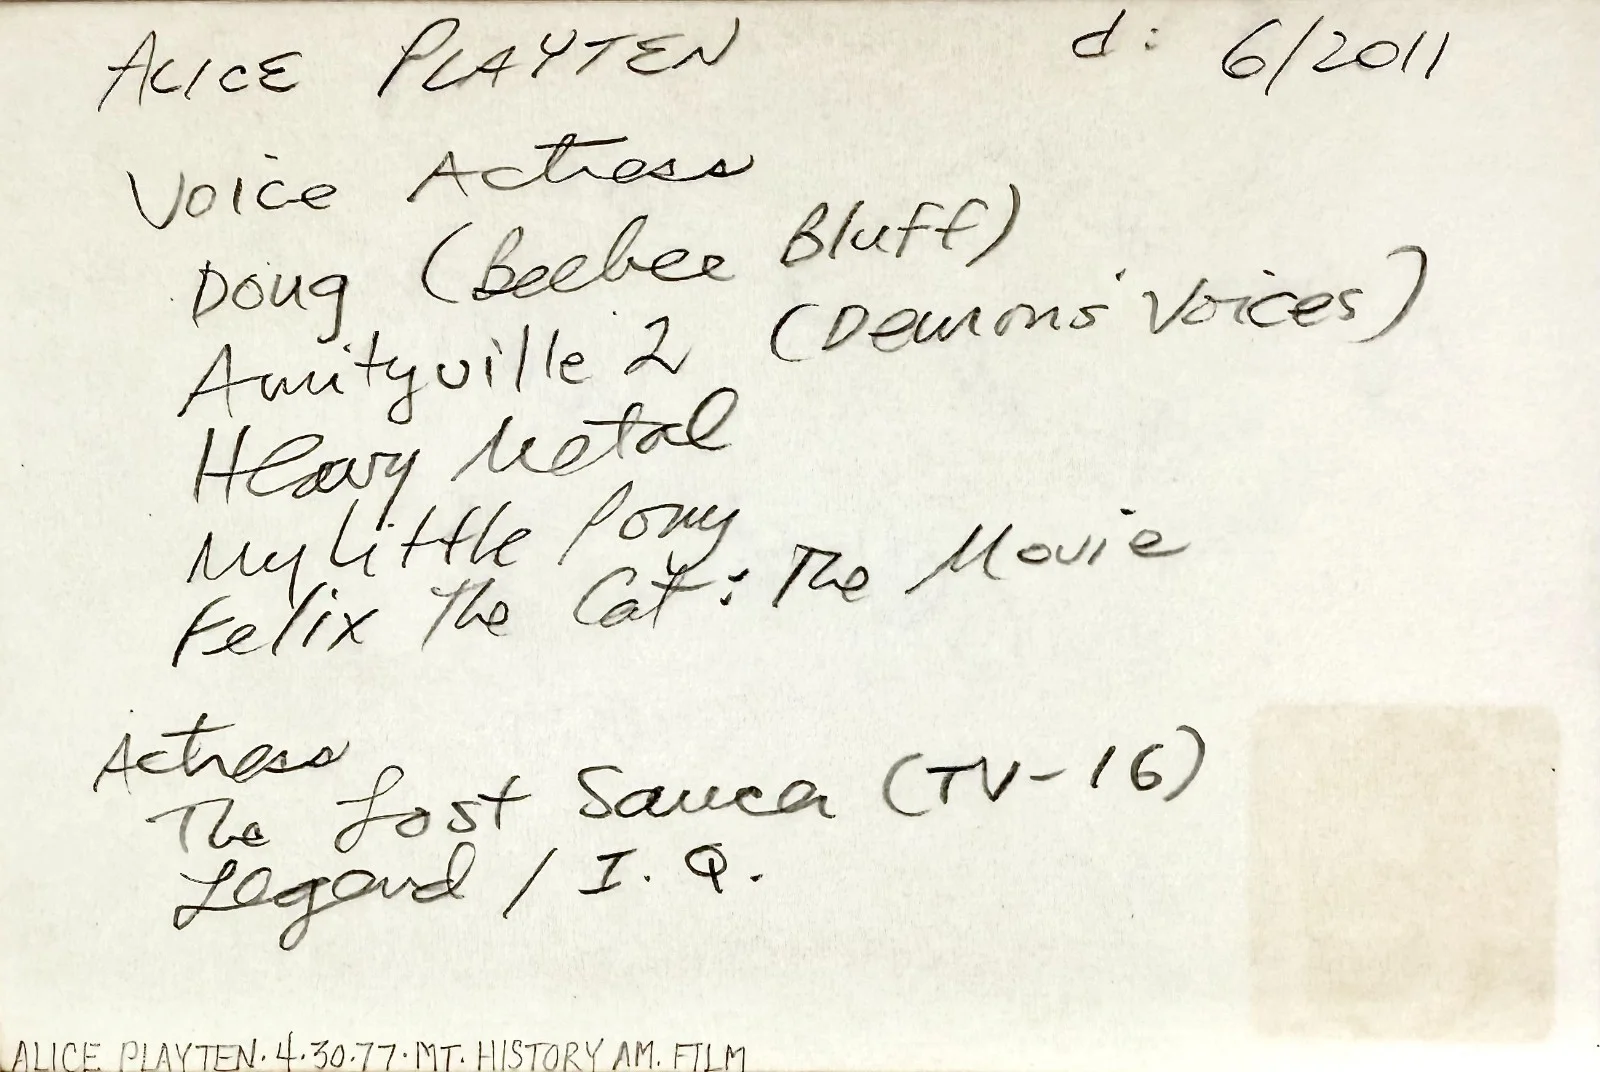 ALICE PLAYTEN d: 6/2011
Voice Actress
Doug (Beebee Bluff)
Amityville 2 (Demons' Voices)
Heavy Metal
My Little Pony
Felix The Cat: The Movie
Actress
The Lost Saucer (TV-16)
Legend / I.Q.
ALICE PLAYTEN. 4.30.77. MT. HISTORY AM. FILM